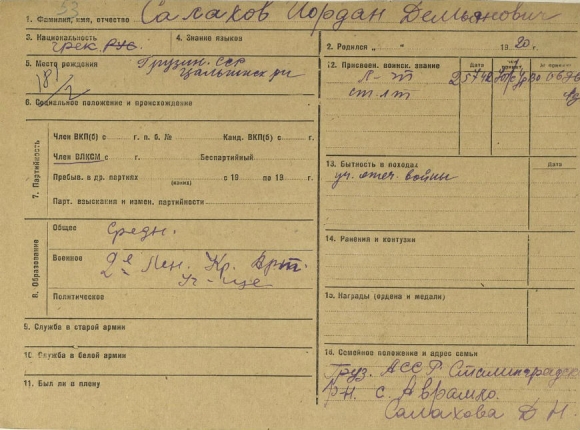 53
1. Фамилия, имя, отчество Салахов Иордан Демьянович
3. Национальность
грек рус.
4. Знание языков
2. Родился „ “ 1920 г.
5. Место рождения Грузин. ССР
Цалкинск р-н
18
6. Социальное положение и происхождение
7. Партийность
Член ВКП(б) с г. п. б. №
Канд. ВКП(б) с г.
Член ВЛКСМ с г.
Беспартийный
Пребыв. в др. партиях с 19 по 19 г.
(каких)
Парт. взыскания и измен. партийности
8. Образования
Общее Средн.
Военное 2е Лен. Кр. Арт.
Уч-ще
Политическое
9. Служба в старой армии
10. Служба в белой армии
11. Был ли в плену
12. Присвоен. воинск. звание
Дата
№ приказа
Л-т
ст. л-т
13. Бытность в походах
Дата
уч. отеч. войны
14. Ранения и контузии
15. Награды (ордена и медали)
16. Семейное положение и адрес семьи
Груз. АССР Сталинградск
р-н. с.
Салахова Д Н.